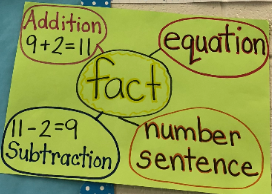 Addition
9+2=11
equation
fact
11-2=9
Subtraction
number
sentence